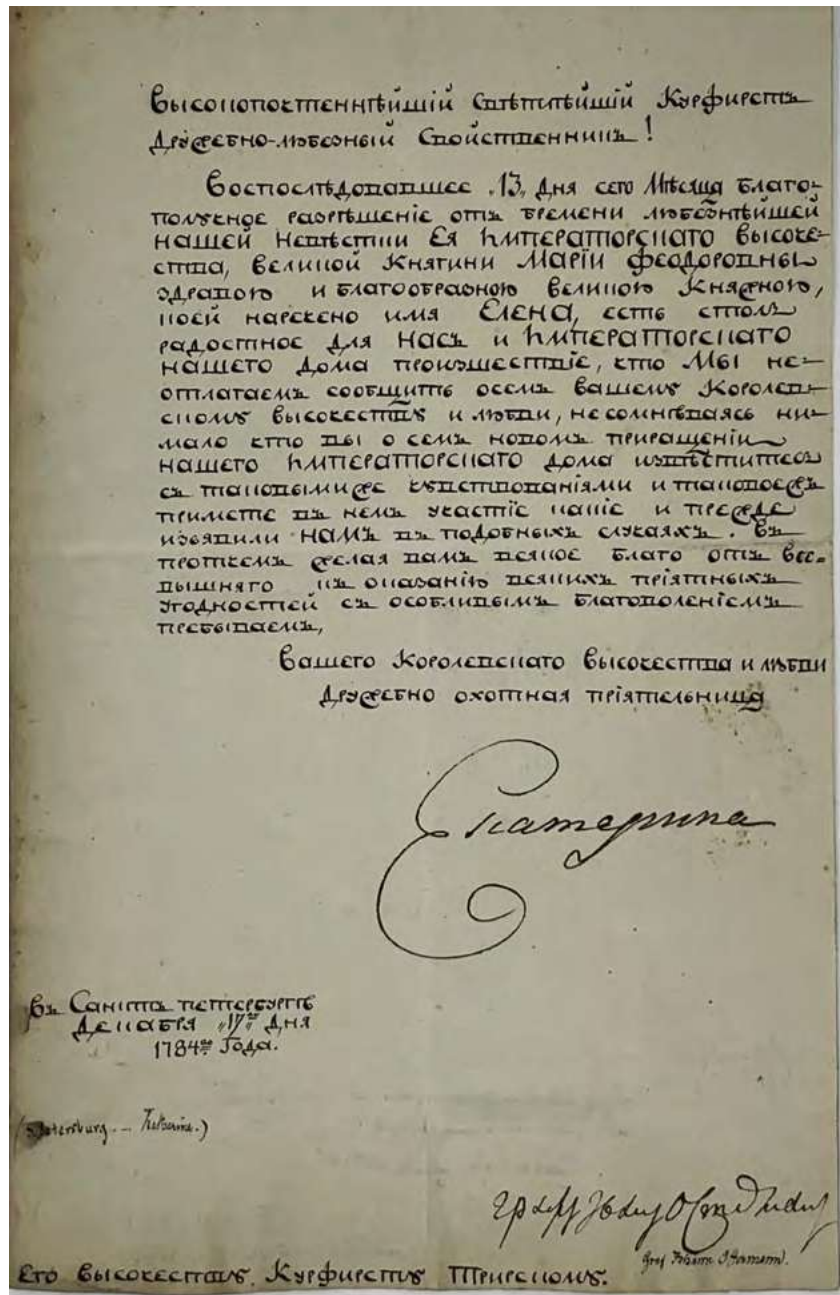 Высокопочтеннѣйшій Свѣтлѣйшій Курфирстъ
Дружебно-любезный Свойственникъ!
Воспослѣдовавшее „13„ дня сего Мѣсяца благо-
получное разрѣшеніе отъ бремени любезнѣйшей
нашей Невѣстки Ея Императорскаго Высоче-
ства, Великой Княгини Маріи Феодоровны
здравою и благообразною Великою Княжною,
коей наречено имя Елена, есть столь
радостное для Насъ и Императорскаго
Нашего Дома произшествіе, что Мы не-
отлагаемъ сообщить осемъ вашему Королев-
скому Высочеству и любви, не сомнѣваясь ни-
мало что вы о семъ новомъ приращеніи
Нашего Императорскаго Дома извѣститесь
съ таковыми же чувствованіями и таковоежъ
примете въ немъ участіе какіе и прежде
изъявили Намъ въ подобныхъ случаяхъ. Въ
протчемъ желая вамъ всякое благо отъ Все-
вышняго къ оказанію всякихъ пріятныхъ
угодностей съ особливымъ благоволеніемъ
пребываемъ,
Вашего Королевскаго Высочества и любви
Дружебно охотная пріятельница
Екатерина
Въ Санктъ петербургѣ
Декабря „17го„ Дня
1784го Года.
(Petersburg. — Katharina.)
Графъ Иванъ Остерманъ
Graf Johann Ostermann.
Его Высочеству, Курфирсту Трирскому.